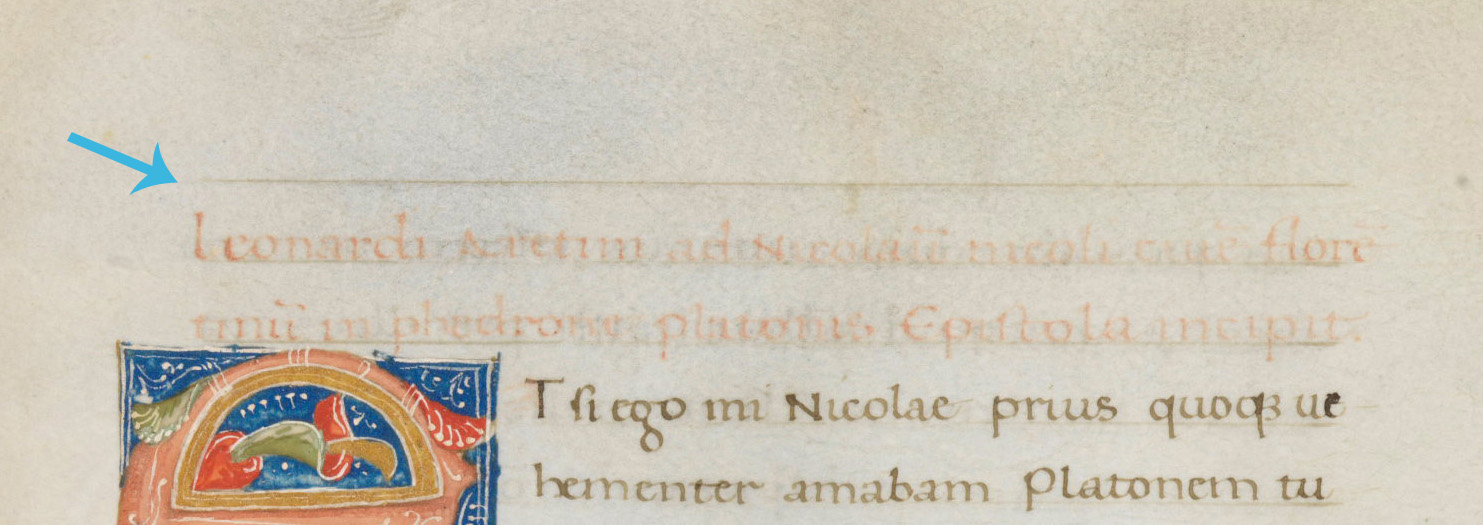 Leonardi Aretini ad Nicolaū nicoli ciuē florē
tinū in phedrone platonis Epistola incipit.
T si ego mi Nicolae prius quoqꝫ ue
hementer amabam Platonem tu